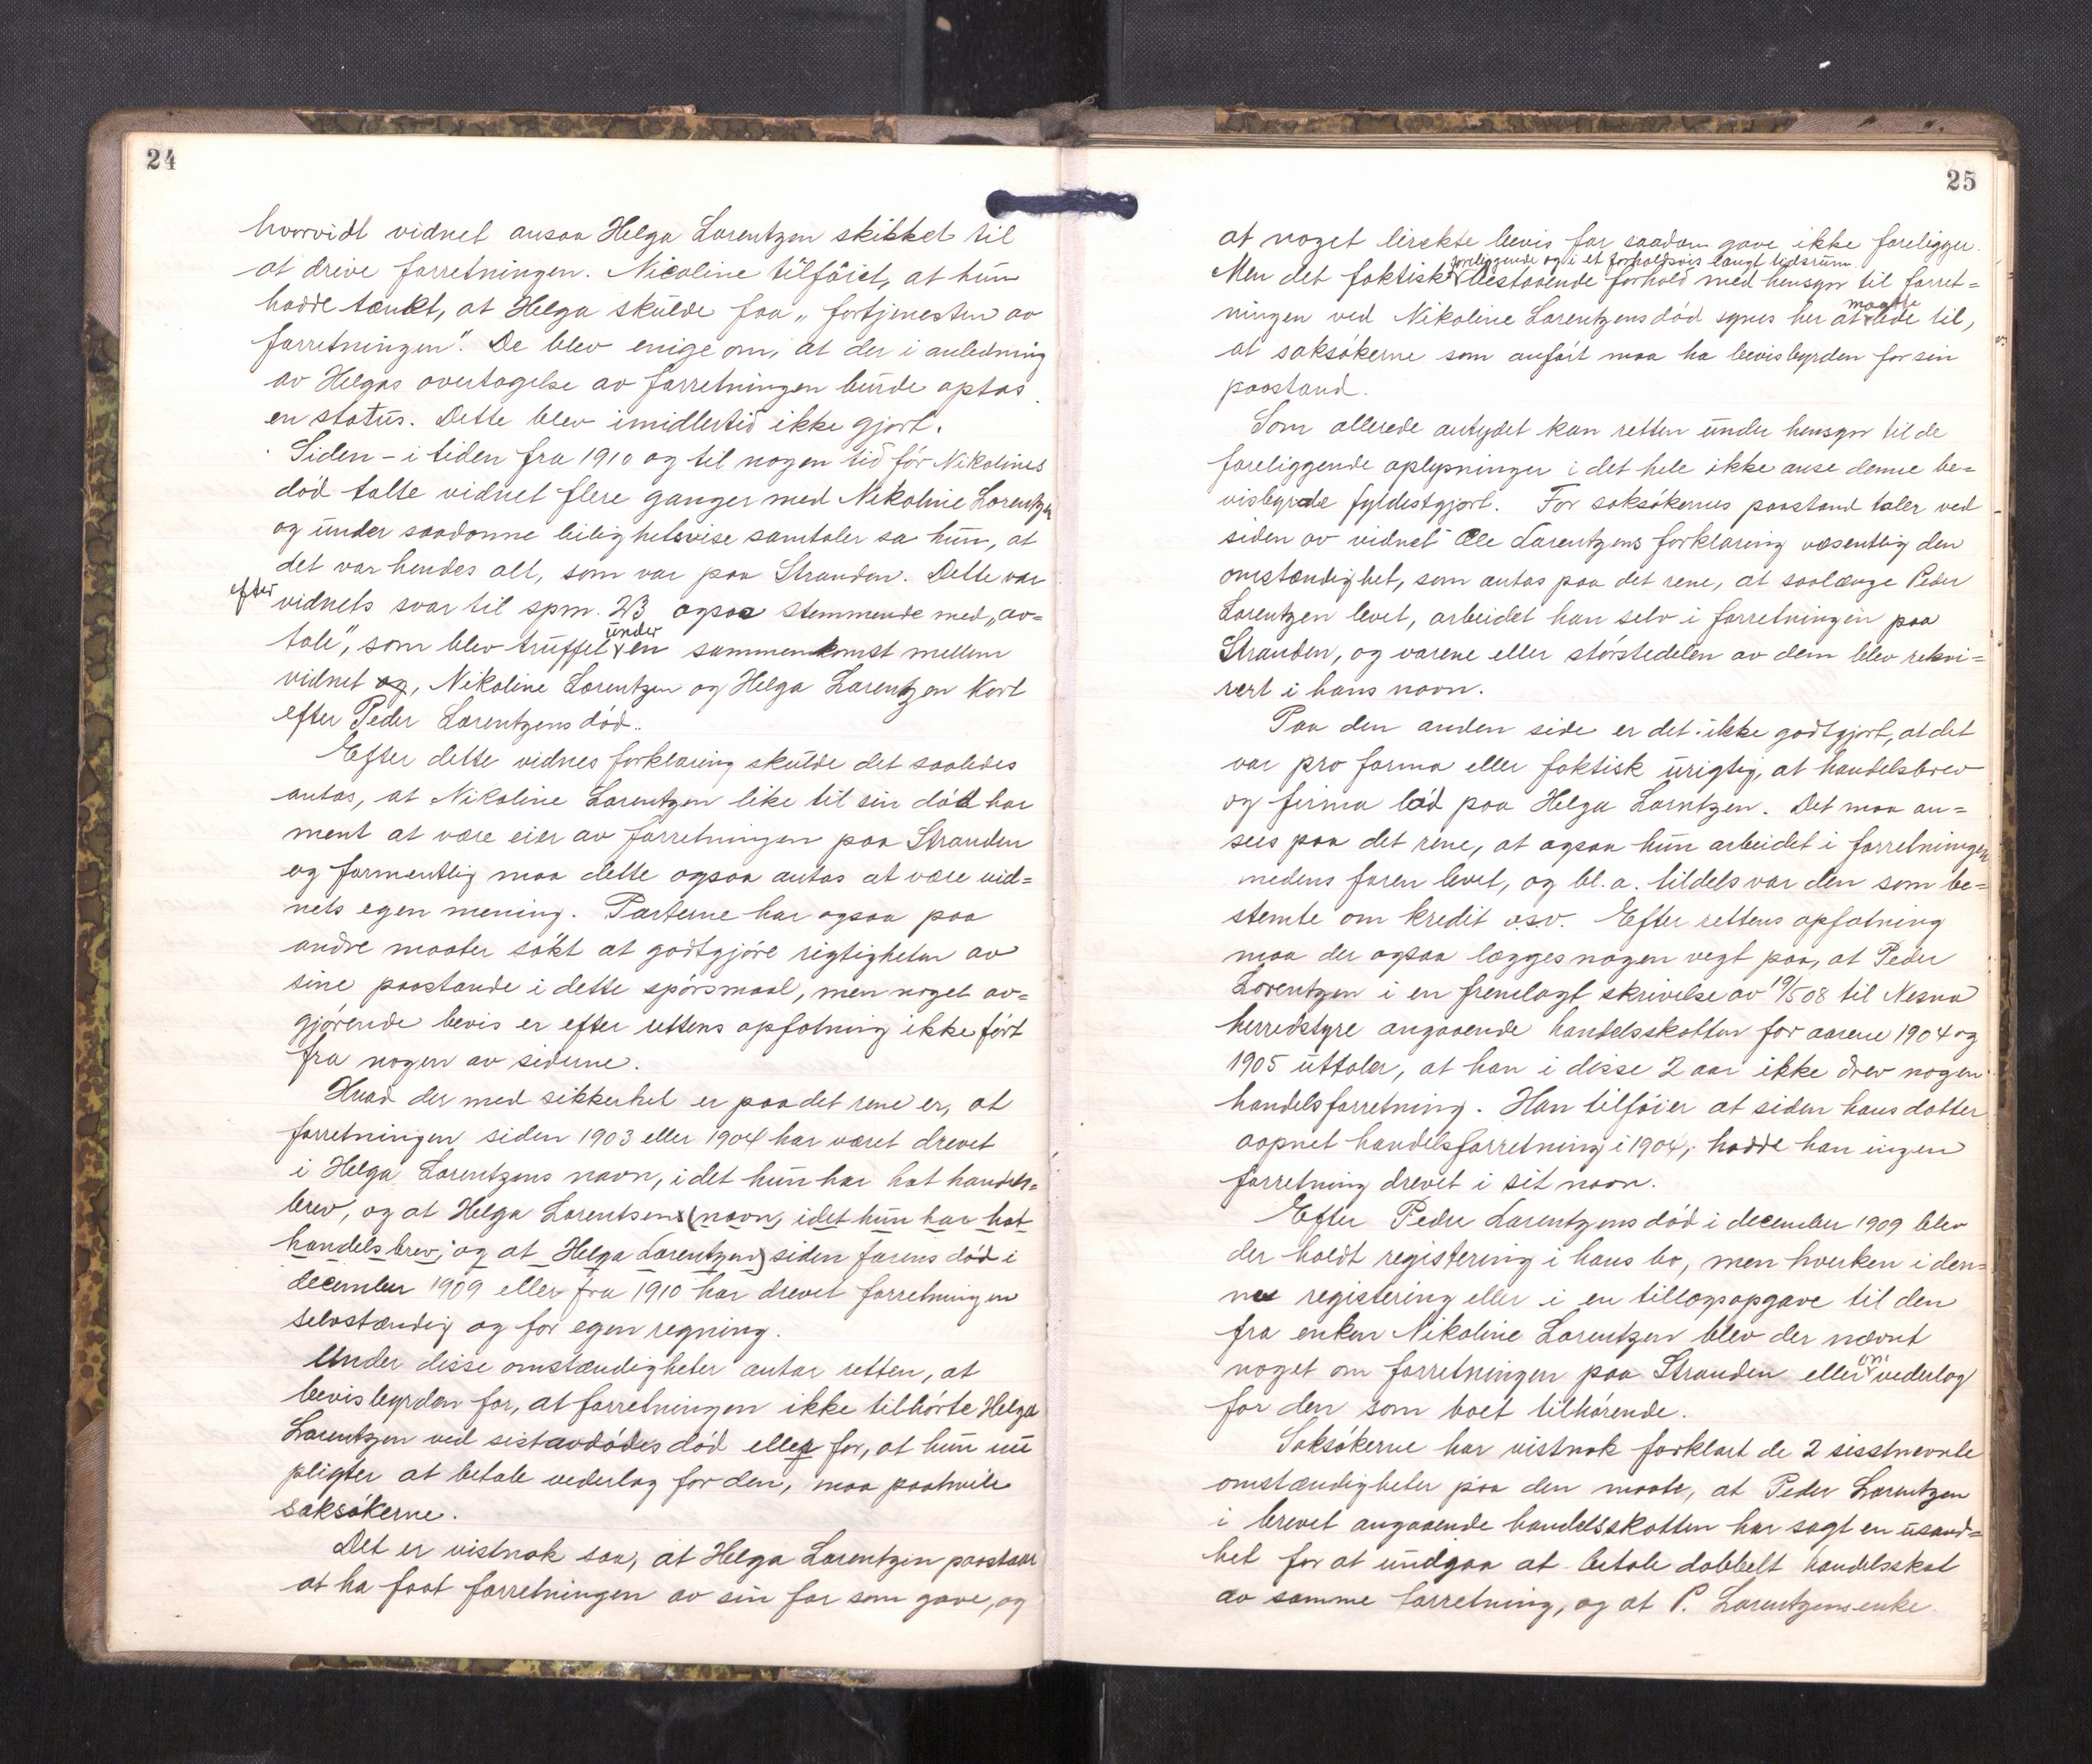 24
hvorvidt vidnet ansaa Helga Lorentzen skikket til
at drive forretningen. Nicoline tilföiet, at hun
hadde tænkt, at Helga skulde faa „fortjenesten av
forretningen". De blev enige om, at der i anledning
av Helgas overtagelse av forretningen burde optas
en status. Dette blev imidlertid ikke gjort.
Siden – i tiden fra 1910 og til nogen tid för Nikolines
död talte vidnet flere ganger med Nikoline Lorentzen
og under saadanne leilighetsvise samtaler sa hun, at
det var hendes alt, som var paa Stranden. Dette var
efter vidnets svar til spm. 23 ogsaa stemmende med „av-
tale", som blev truffet under en sammenkomst mellem
vidnet og, Nikoline Lorentzen og Helga Lorentzen kort
efter Peder Lorentzens död.
Efter dette vidnes forklaring skulde det saaledes
antas, at Nikoline Lorentzen like til sin död har
ment at være eier av forretningen paa Stranden
og formentlig maa dette ogsaa antas at være vid=
nets egen mening. Parterne har ogsaa paa
andre maater sökt at godtgjöre rigtigheten av
sine paastande i dette spörsmaal, men noget av=
gjörende bevis er efter rettens opfatning ikke fört
fra nogen av siderne.
Hvad der med sikkerhet er paa det rene er, at
forretningen siden 1903 eller 1904 har været drevet
i Helga Lorentzens navn, idet hun har hat handels=
brev, og at Helga Lorentsens (navn, idet hun har hat
handelsbrev, og at Helga Lorentzen) siden farens död i
december 1909 eller fra 1910 har drevet forretningen
selvstændig og for egen regning.
Under disse omstændigheter antar retten, at
bevisbyrden for, at forretningen ikke tilhörte Helga
Lorentzen ved sistavdödes död eller for, at hun nu
pligter at betale vederlag for den, maa paahvile
saksökerne.
Det er vistnok saa, at Helga Lorentzen paastaar
at ha faat forretningen av sin far som gave, og
25
at noget direkte bevis for saadan gave ikke foreligger.
Men det faktisk foreliggende og i et forholdsvis langt tidsrum bestaaende forhold med hensyn til forret=
ningen ved Nikoline Lorentzens död synes her at maatte lede til,
at saksökerne som anfört maa ha bevisbyrden for sin
paastand.
Som allerede antydet kan retten under hensyn til de
foreliggende oplysninger i det hele ikke anse denne be=
visbyrde fyldestgjort. For saksökernes paastand taler ved
siden av vidnet Ole Lorentzens forklaring væsentlig den
omstændighet, som antas paa det rene, at saalænge Peder
Lorentzen levet, arbeidet han selv i forretningen paa
Stranden, og varene eller störstedelen av dem blev rekvi=
rert i hans navn.
Paa den anden side er det ikke godtgjort, at det
var pro forma eller faktisk urigtig, at handelsbrev
og firma löd paa Helga Lorntzen. Det maa an=
sees paa det rene, at ogsaa hun arbeidet i forretningen
medens faren levet, og bl. a. tildels var den som be=
stemte om kredit o.s.v. Efter rettens opfatning
maa der ogsaa lægges nogen vegt paa, at Peder
Lorentzen i en fremlagt skrivelse av 19/5 08 til Nesna
herredstyre angaaende handelsskatten for aarene 1904 og
1905 uttaler, at han i disse 2 aar ikke drev nogen
handelsforretning. Han tilföier at siden hans datter
aapnet handelsforretning i 1904, hadde han ingen
forretning drevet i sit navn.
Efter Peder Lorentzens död i december 1909 blev
der holdt registering i hans bo, men hverken i den=
ne registering eller i en tillægsopgave til den
fra enken Nikoline Lorentzen blev der nævnt
noget om forretningen paa Stranden eller om vederlag
for den som boet tilhörende.
Saksökerne har vistnok forklart de 2 sisstnevnte
omstændigheter paa den maate, at Peder Lorentzen
i brevet angaaende handelsskatten har sagt en usand=
het for at undgaa at betale dobbelt handelsskat
av samme forretning, og at P. Lorentzens enke